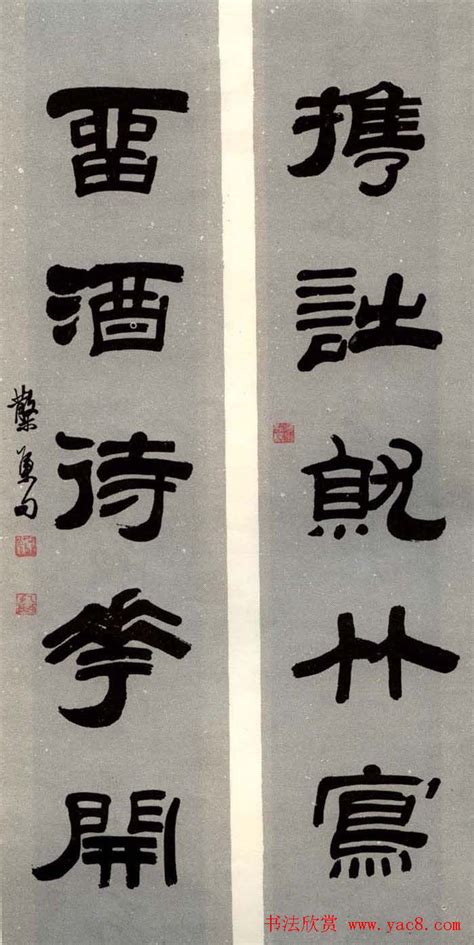 携詩就竹寫
留酒待花開
书法欣赏 www.yac8.com